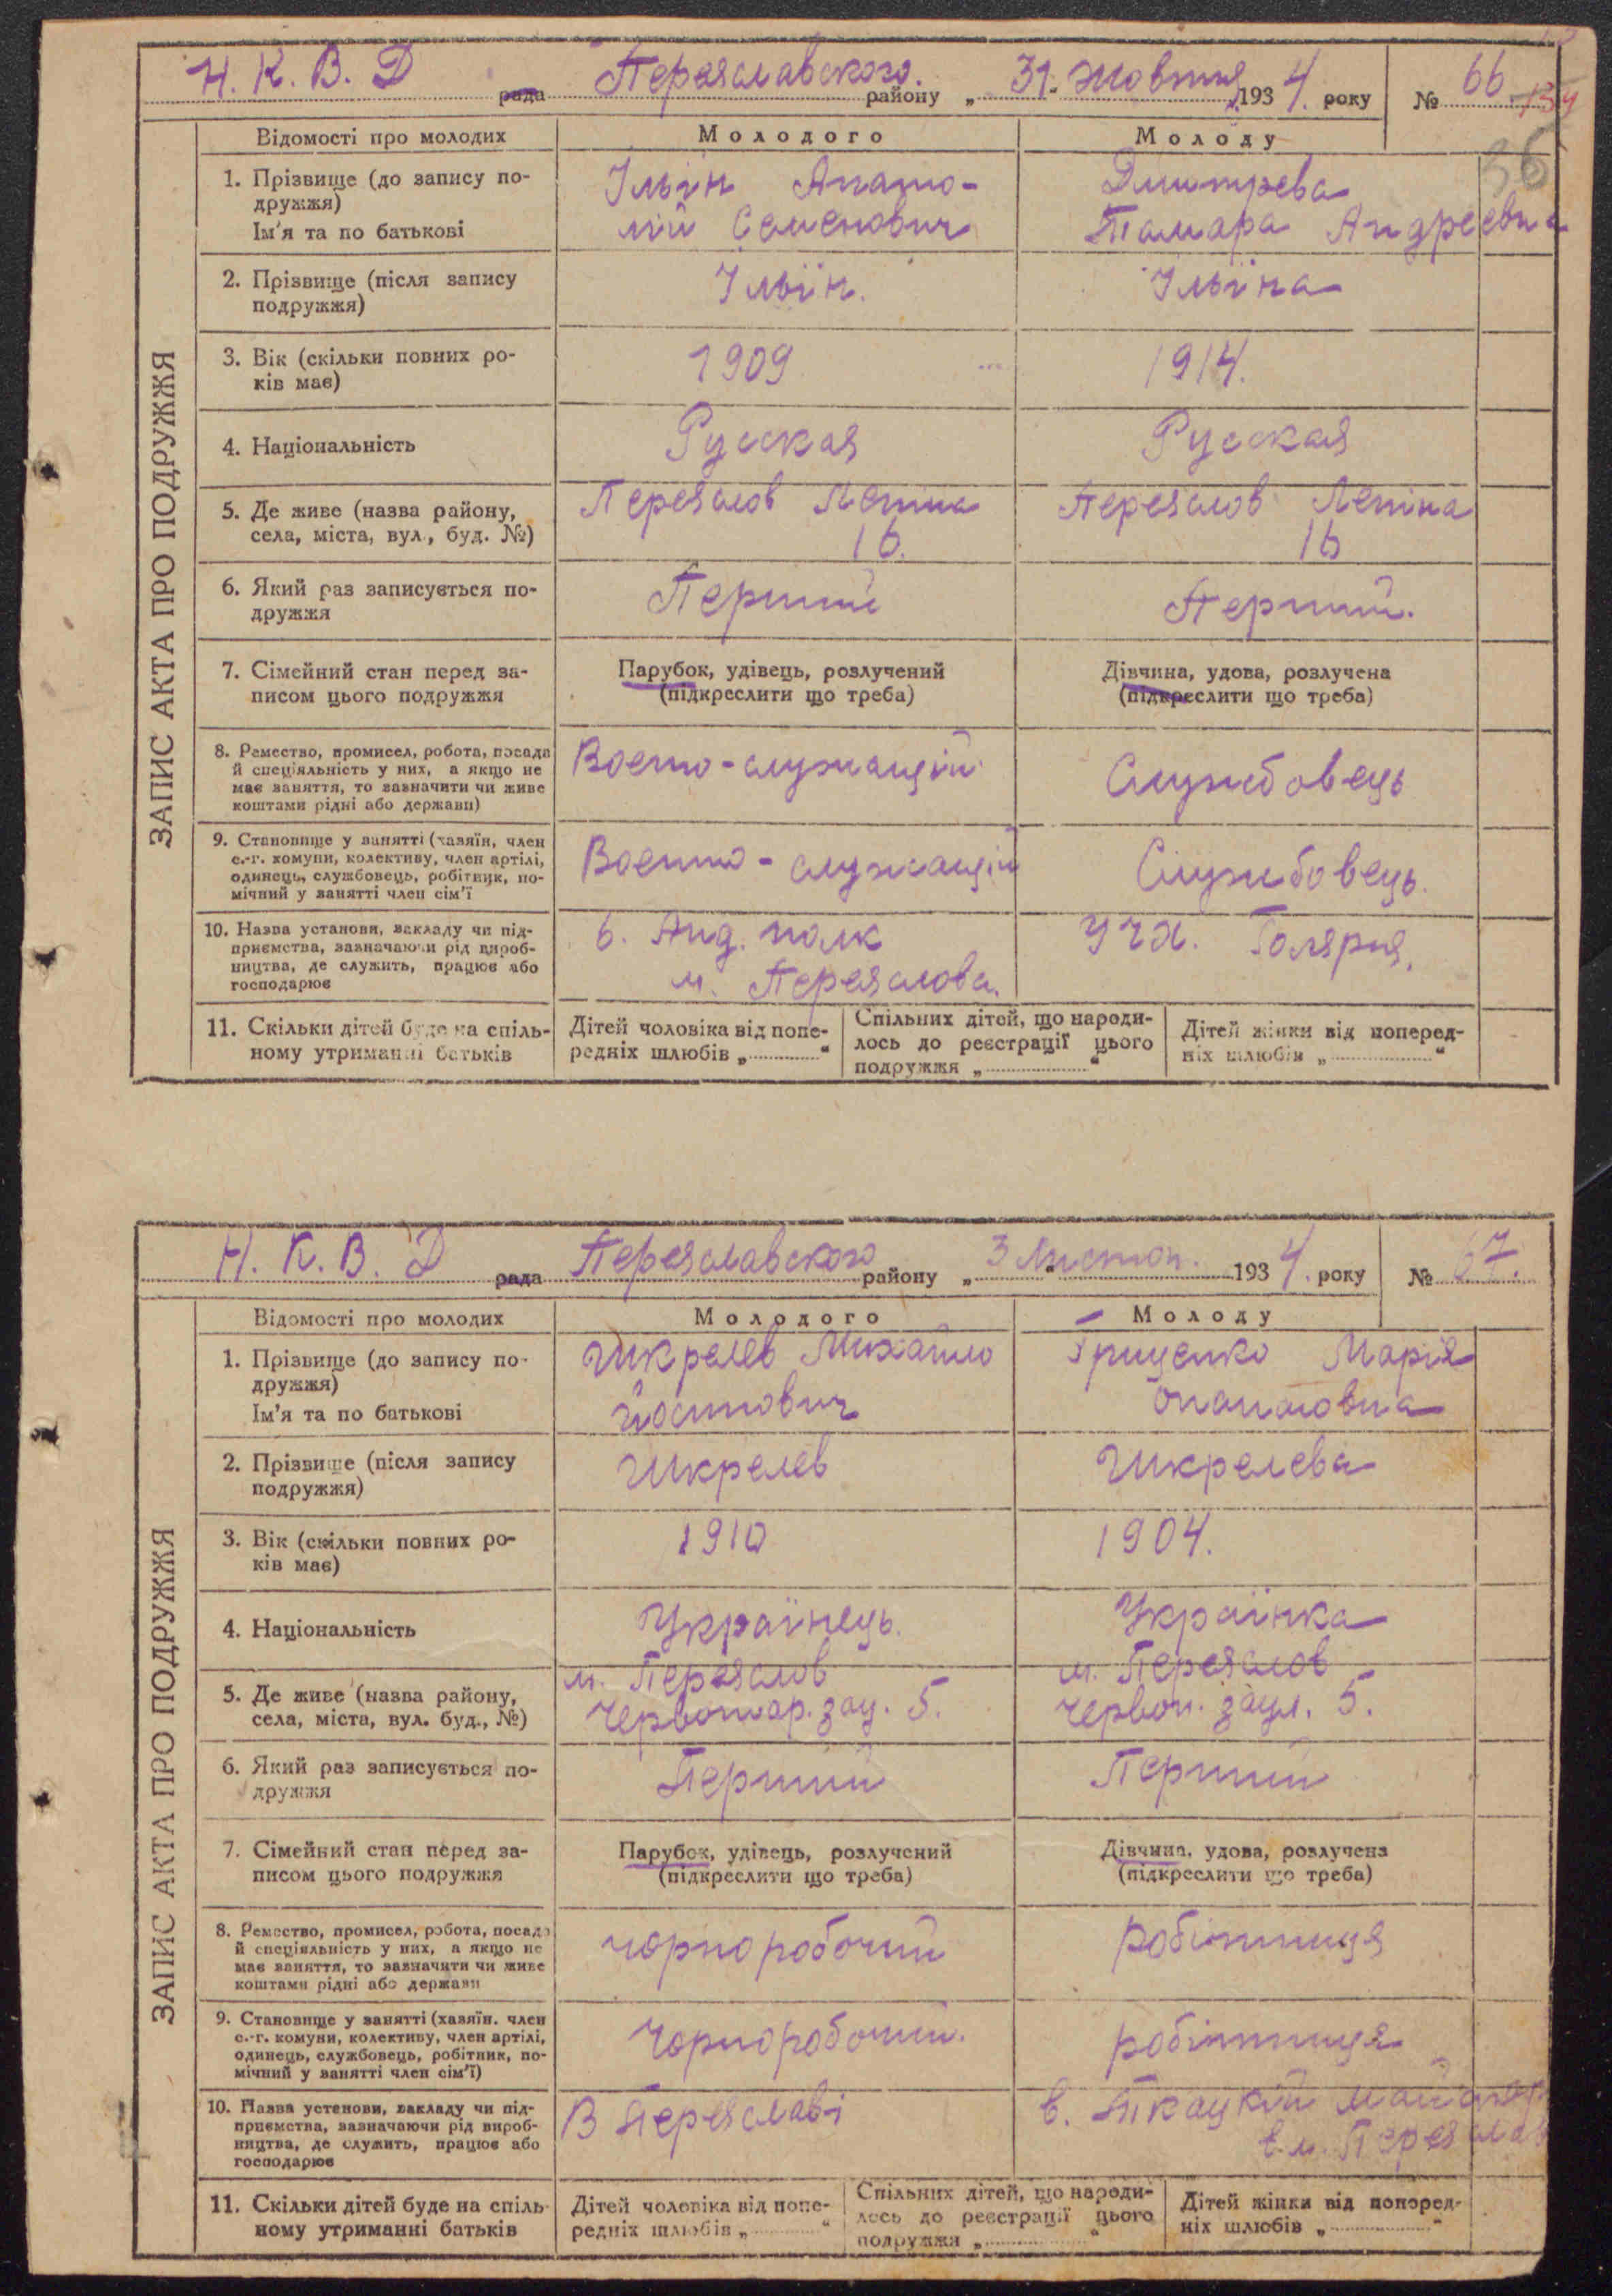 Н. К. В. Д рада Переяславского району „31“ Жовтня 1934. року № 66
Відомості про молодих
Молодого
Молоду
36
1. Прізвище (до запису по-
дружжя)
Ім'я та по батькові
Ільїн Анато-
лій Семенович
Дмитрева
Тамара Андреевна
2. Прізвище (після запису
подружжя)
Ільїн.
Ільїна
3. Вік (скільки повних ро-
ків має)
1909
1914.
4. Національність
Русская
Русская
5. Де живе (назва району,
села, міста, вул., буд. №)
Переяслов Леніна
16.
Переяслов Леніна
16
6. Який раз записується по-
дружжя
Перший
Перший.
7. Сімейний стан перед за-
писом цього подружжя
Парубок, удівець, розлучений
(підкреслити що треба)
Дівчина, удова, розлучена
(підкреслити що треба)
8. Ремество, промисел, робота, посада
й спеціяльність у них, а якщо не
має заняття, то зазначити чи живе
коштами рідні або держави)
Воено-служащій
Службовець
9. Становище у занятті (хазяїн, член
с.-г. комуни, колективу, член артілі,
одинець, службовець, робітник, по-
мічний у занятті член сім'ї
Воено-служащій
Службовець.
10. Назва установи, закладу чи під-
приємства, зазначаючи рід вироб-
ництва, де служить, працює або
господарює
полк
м. Переяслова.
11. Скільки дітей буде на спіль-
ному утриманні батьків
Дітей чоловіка від попе-
редніх шлюбів „ “
Спільних дітей, що народи-
лось до реєстрації цього
подружжя „ “
Дітей жінки від поперед-
ніх шлюбів „ “
ЗАПИС АКТА ПРО ПОДРУЖЖЯ
Н. К. В. Д рада Переяславского району „3“ Листоп. 1934. року № 67.
Відомості про молодих
Молодого
Молоду
1. Прізвище (до запису по-
дружжя)
Ім'я та по батькові
Чикрелев Михайло
Йосипович
Гриценко Марія
2. Прізвище (після запису
подружжя)
Чикрелев
Чикрелева
3. Вік (скільки повних ро-
ків має)
1910
1904.
4. Національність
Українець.
Українка
5. Де живе (назва району,
села, міста, вул. буд., №)
м. Переяслов
5.
м. Переяслов
Червон. заул. 5.
6. Який раз записується по-
дружжя
Перший
Перший
7. Сімейний стан перед за-
писом цього подружжя
Парубок, удівець, розлучений
(підкреслити що треба)
Дівчина, удова, розлучена
(підкреслити що треба)
8. Ремество, промисел, робота, посада
й спеціяльність у них, а якщо не
має заняття, то зазначити чи живе
коштами рідні або держави
чорноробочий
робітниця
9. Становище у занятті (хазяїн. член
с.-г. комуни, колективу, член артілі,
одинець, службовець, робітник, по-
мічний у занятті член сім'ї)
Чорноробочий.
робітниця
10. Назва установи, закладу чи під-
приємства, зазначаючи рід вироб-
ництва, де служить, працює або
господарює
В Переяславі
в. Ткацкій
в м. Переяслав
11. Скільки дітей буде на спіль-
ному утриманні батьків
Дітей чоловіка від попе-
редніх шлюбів „ “
Спільних дітей, що народи-
лось до реєстрації цього
подружжя „ “
Дітей жінки від поперед-
ніх шлюбів „ “
ЗАПИС АКТА ПРО ПОДРУЖЖЯ